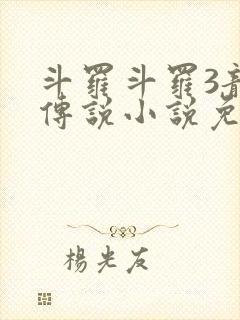 斗羅斗羅3龍
傳說小說免
楊光友